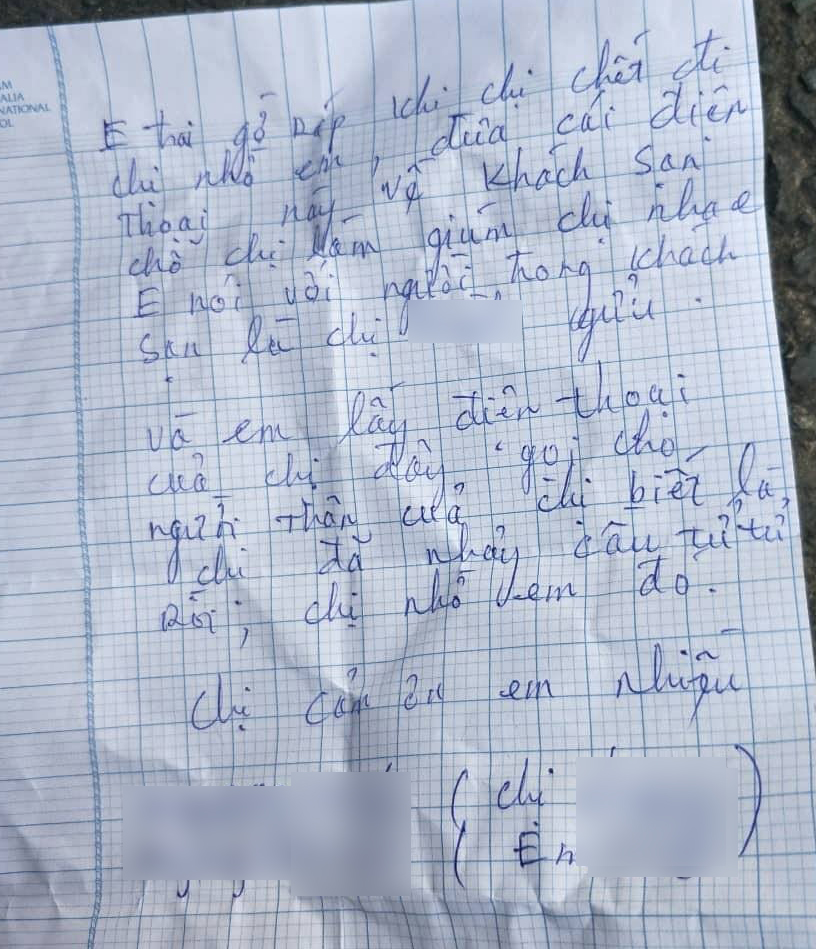 AM
ALIA
NATIONAL
OL
E trai gỗ nếp khi chị chết đi
chị nhờ em, đưa cái điện
Thoại này về khách sạn
chỗ chị làm giùm chị nha e
E nói với người trong khách
sạn là chị gửi.
và em lấy điện thoại
của chị đây gọi cho
người thân của chị biết là,
chị đã nhảy cầu tử tử
Rồi; chị nhờ em đó.
chị cảm ơn em nhiều
( chị )
( En